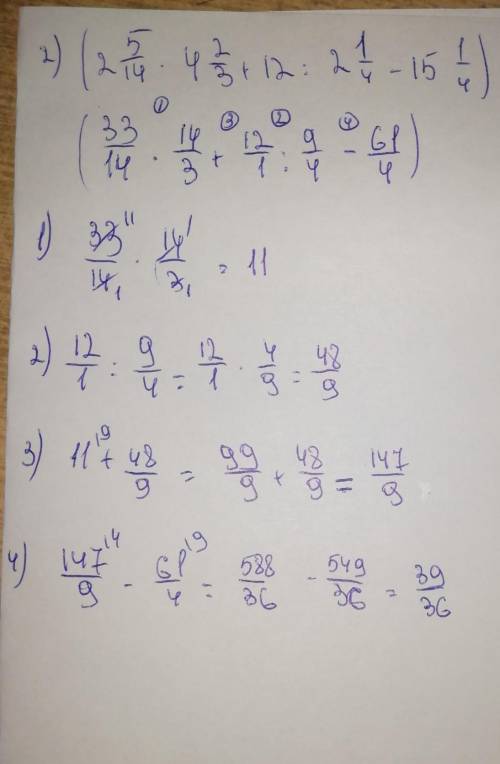 2) (2 5/14 · 4 2/3 + 12 : 2 1/4 - 15 1/4)
① ③ ② ④
(33/14 · 14/3 + 12/1 : 9/4 - 61/4)
1) 33^11/14_1 · 14^1/3_1 = 11
2) 12/1 : 9/4 = 12/1 · 4/9 = 48/9
3) 11^\9 + 48/9 = 99/9 + 48/9 = 147/9
4) 147^\4/9 - 61^\9/4 = 588/36 - 549/36 = 39/36